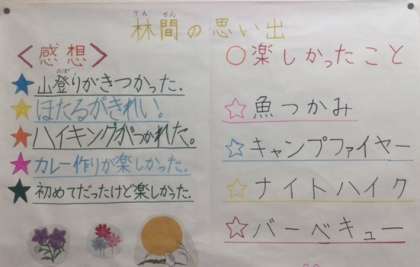 林間の思い出
＜感想＞
★山登りがきつかった.
★ほたるがきれい!
★ハイキングがつかれた。
★カレー作りが楽しかった.
★初めてだったけど楽しかった.
○楽しかったこと
☆魚つかみ
☆キャンプファイヤー
☆ナイトハイク
☆バーベキュー